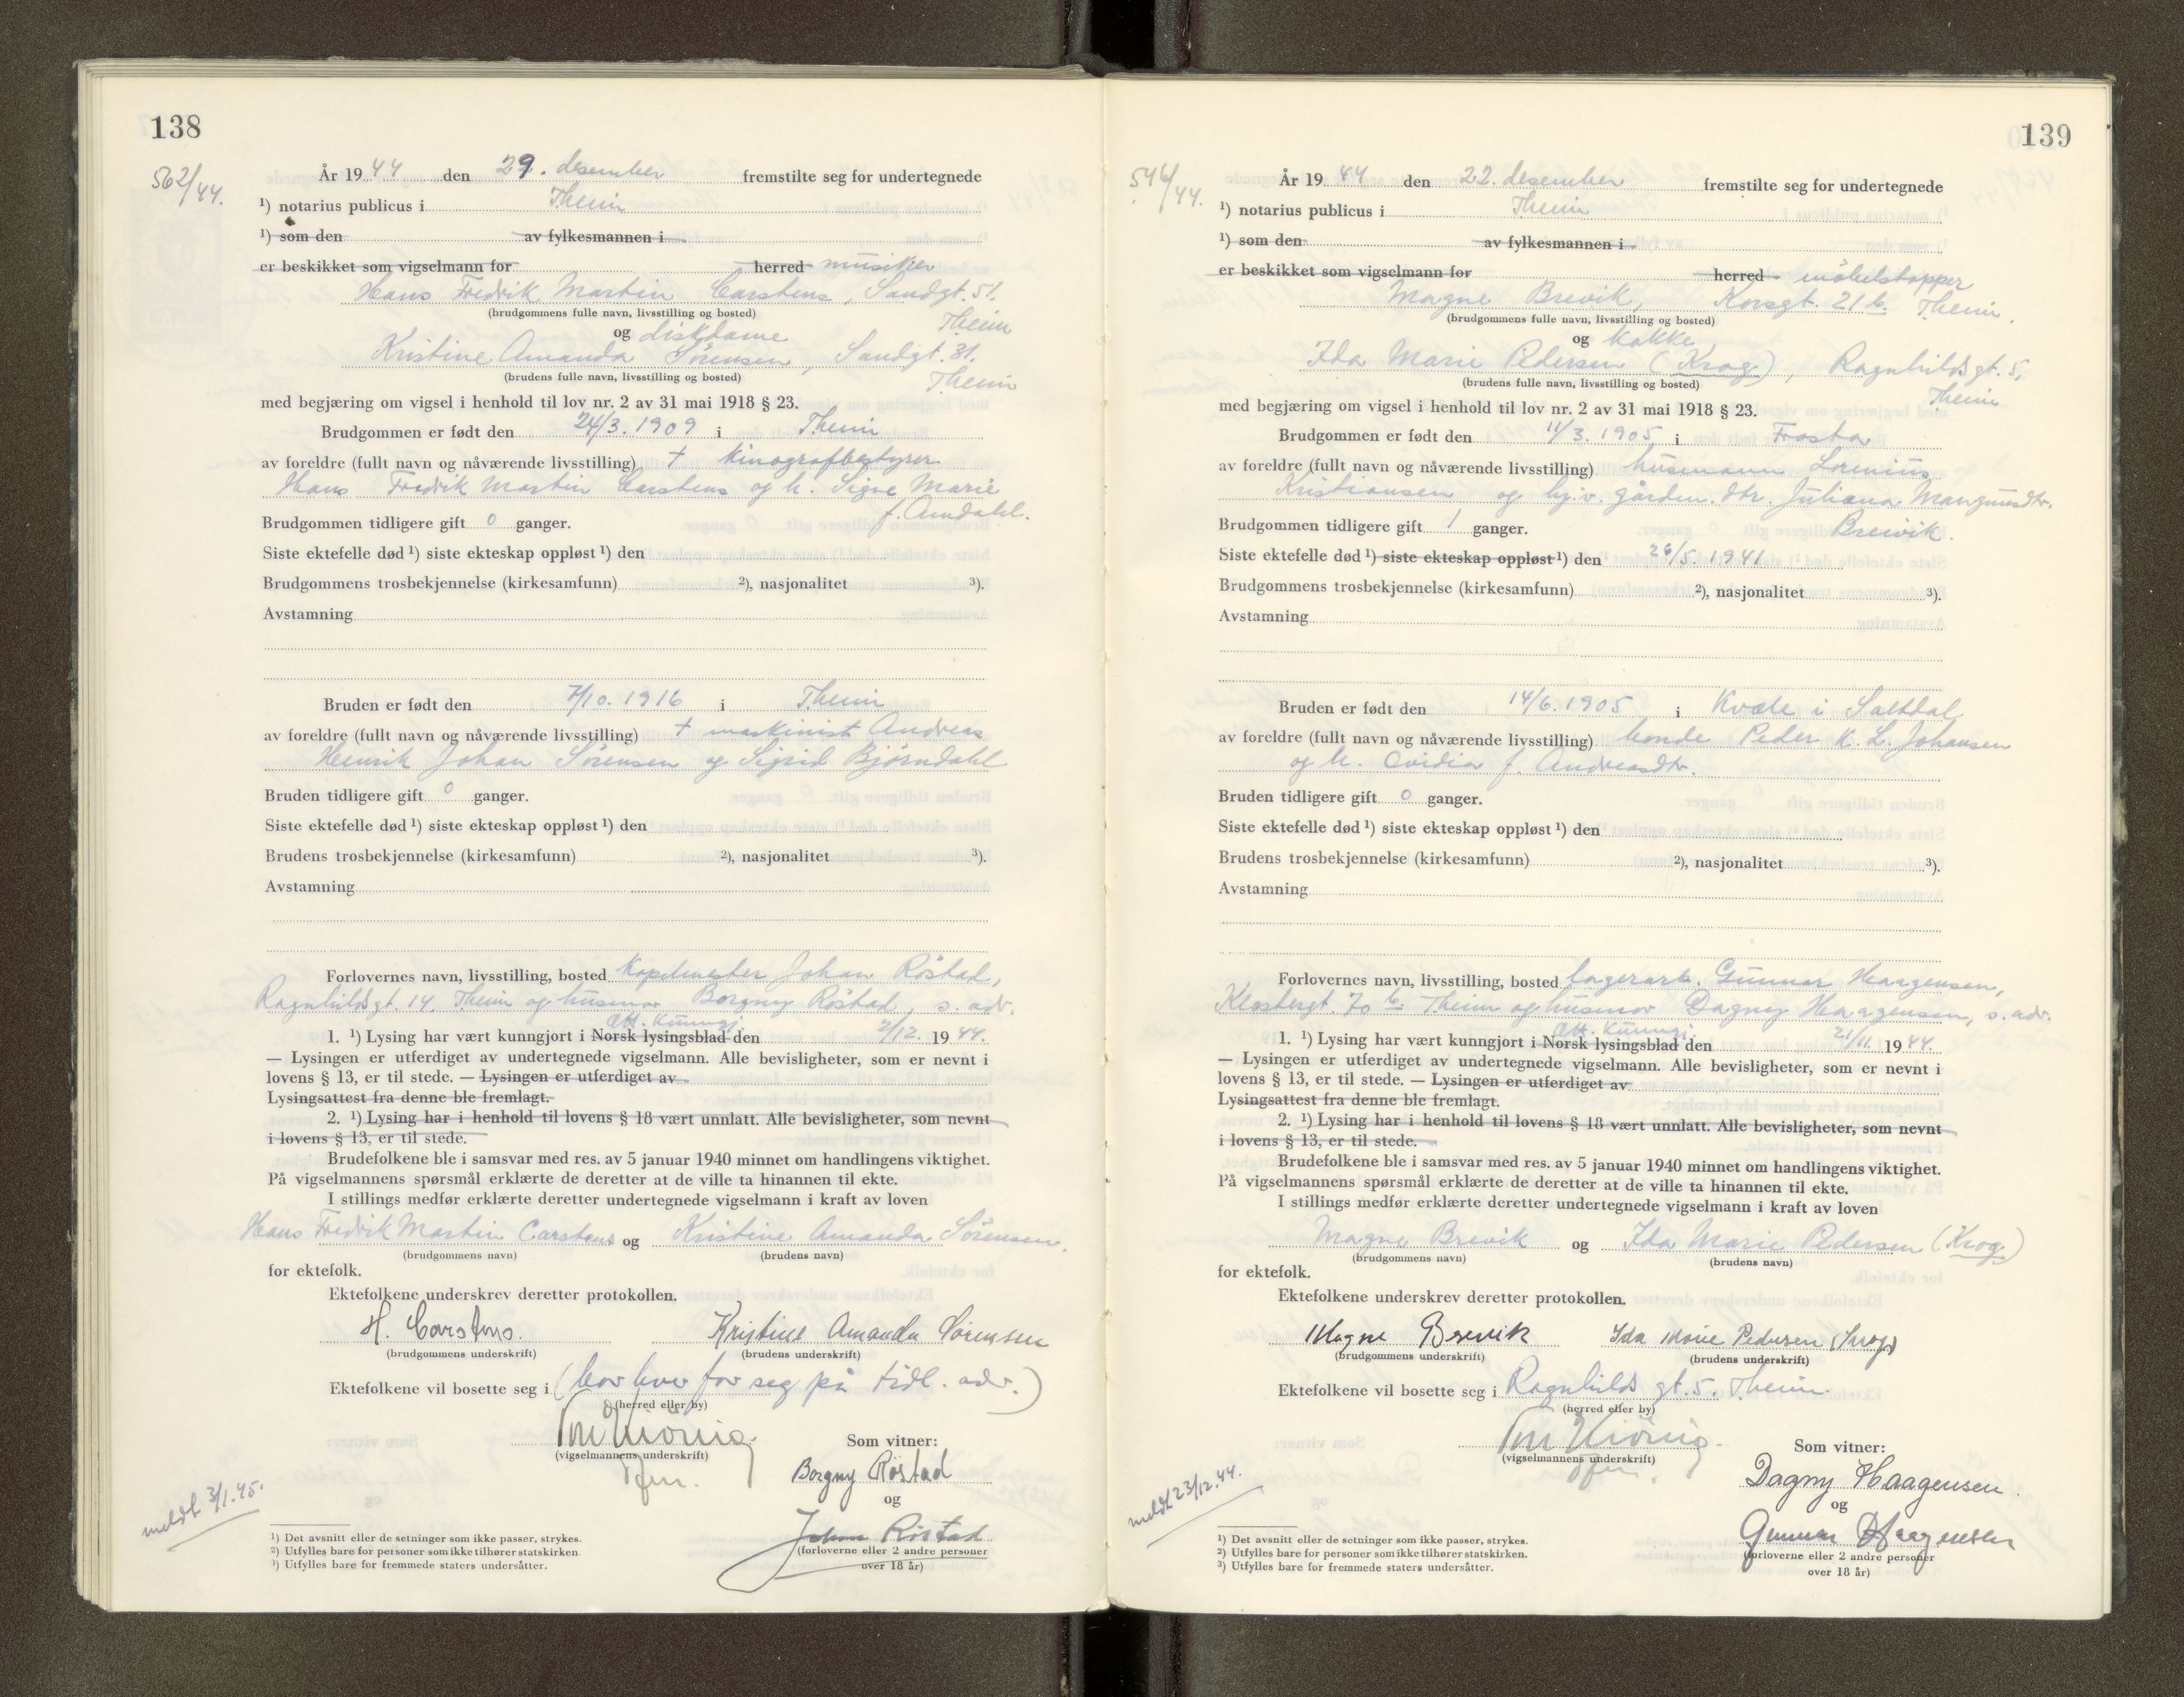 138
562/44.
År 1944 den 29. desember fremstilte seg for undertegnede
¹) notarius publicus i Theim
¹) som den av fylkesmannen i
er beskikket som vigselmann for herred musiker
Hans Fredrik Martin Carstens, Sandgt. 51.
(brudgommens fulle navn, livsstilling og bosted) Theim
og diskdame
Kristine Amanda Sörensen, Sandgt. 31.
(brudens fulle navn, livsstilling og bosted) Theim
med begjæring om vigsel i henhold til lov nr. 2 av 31 mai 1918 § 23.
Brudgommen er født den 24/3. 1909 i Theim
av foreldre (fullt navn og nåværende livsstilling) † kinografbestyrer
Hans Fredrik Martin Carstens og h. Signe Marie
f. Amdahl.
Brudgommen tidligere gift 0 ganger.
Siste ektefelle død ¹) siste ekteskap oppløst ¹) den
Brudgommens trosbekjennelse (kirkesamfunn) ²), nasjonalitet ³).
Avstamning
Bruden er født den 7/10. 1916 i Theim
av foreldre (fullt navn og nåværende livsstilling) † maskinist Andreas
Henrik Johan Sörensen og Sigrid Björndahl
Bruden tidligere gift 0 ganger.
Siste ektefelle død ¹) siste ekteskap oppløst ¹) den
Brudens trosbekjennelse (kirkesamfunn) ²), nasjonalitet ³).
Avstamning
Forlovernes navn, livsstilling, bosted kapelmester Johan Röstad,
Ragnhildsgt. 14. Theim og husmor Borgny Röstad, s. adr.
off. kunngj.
1. ¹) Lysing har vært kunngjort i Norsk lysingsblad den 2/12. 1944.
— Lysingen er utferdiget av undertegnede vigselmann. Alle bevisligheter, som er nevnt i
lovens § 13, er til stede. — Lysingen er utferdiget av
Lysingsattest fra denne ble fremlagt.
2. ¹) Lysing har i henhold til lovens § 18 vært unnlatt. Alle bevisligheter, som nevnt
i lovens § 13, er til stede.
Brudefolkene ble i samsvar med res. av 5 januar 1940 minnet om handlingens viktighet.
På vigselmannens spørsmål erklærte de deretter at de ville ta hinannen til ekte.
I stillings medfør erklærte deretter undertegnede vigselmann i kraft av loven
Hans Fredrik Martin Carstens og Kristine Amanda Sörensen.
(brudgommens navn) (brudens navn)
for ektefolk.
Ektefolkene underskrev deretter protokollen.
H. Carstens. Kristine Amanda Sörensen
(brudgommens underskrift) (brudens underskrift)
Ektefolkene vil bosette seg i (bor hver for seg på tidl. adr.)
(herred eller by)
(vigselmannens underskrift)
Som vitner:
Borgny Röstad
og
Johan Röstad
(forloverne eller 2 andre personer
over 18 år)
meldt 3/1.45.
¹) Det avsnitt eller de setninger som ikke passer, strykes.
²) Utfylles bare for personer som ikke tilhører statskirken.
³) Utfylles bare for fremmede staters undersåtter.
139
546/44.
År 1944 den 22. desember fremstilte seg for undertegnede
¹) notarius publicus i Theim
¹) som den av fylkesmannen i
er beskikket som vigselmann for herred möbelstopper
Magne Brevik, Korsgt. 21 b. Theim.
(brudgommens fulle navn, livsstilling og bosted)
og kokke
Ida Marie Pedersen (Krog), Ragnhildsgt. 5,
(brudens fulle navn, livsstilling og bosted) Theim
med begjæring om vigsel i henhold til lov nr. 2 av 31 mai 1918 § 23.
Brudgommen er født den 11/3. 1905 i Frosta
av foreldre (fullt navn og nåværende livsstilling) husmann Lorenius
Kristiansen og hj.v. gården. dtr. Juliana Mangnusdtr.
Breivik.
Brudgommen tidligere gift 1 ganger.
Siste ektefelle død ¹) siste ekteskap oppløst ¹) den 26/5. 1941
Brudgommens trosbekjennelse (kirkesamfunn) ²), nasjonalitet ³).
Avstamning
Bruden er født den 14/6. 1905 i Kvæle i Saltdal
av foreldre (fullt navn og nåværende livsstilling) bonde Peder K. L. Johansen
og h. Ovidia f. Andreasdtr.
Bruden tidligere gift 0 ganger.
Siste ektefelle død ¹) siste ekteskap oppløst ¹) den
Brudens trosbekjennelse (kirkesamfunn) ²), nasjonalitet ³).
Avstamning
Forlovernes navn, livsstilling, bosted lagerarb. Gunnar Haagensen,
Klostergt. 70 b. Theim og husmor Dagny Haagensen, s. adr.
off. kunngj.
1. ¹) Lysing har vært kunngjort i Norsk lysingsblad den 21/11. 1944.
— Lysingen er utferdiget av undertegnede vigselmann. Alle bevisligheter, som er nevnt i
lovens § 13, er til stede. — Lysingen er utferdiget av
Lysingsattest fra denne ble fremlagt.
2. ¹) Lysing har i henhold til lovens § 18 vært unnlatt. Alle bevisligheter, som nevnt
i lovens § 13, er til stede.
Brudefolkene ble i samsvar med res. av 5 januar 1940 minnet om handlingens viktighet.
På vigselmannens spørsmål erklærte de deretter at de ville ta hinannen til ekte.
I stillings medfør erklærte deretter undertegnede vigselmann i kraft av loven
Magne Brevik og Ida Marie Pedersen (Krog)
(brudgommens navn) (brudens navn)
for ektefolk.
Ektefolkene underskrev deretter protokollen.
Magne Brevik Ida Marie Pedersen (Krog)
(brudgommens underskrift) (brudens underskrift)
Ektefolkene vil bosette seg i Ragnhilds gt. 5. Theim.
(herred eller by)
(vigselmannens underskrift)
Som vitner:
Dagny Haagensen.
og
Gunnar Haagensen
(forloverne eller 2 andre personer
over 18 år)
meldt 23/12.44.
¹) Det avsnitt eller de setninger som ikke passer, strykes.
²) Utfylles bare for personer som ikke tilhører statskirken.
³) Utfylles bare for fremmede staters undersåtter.